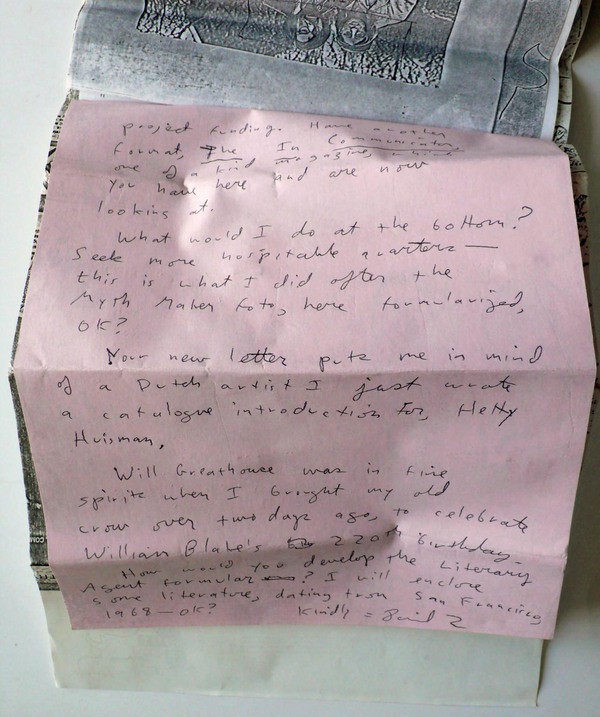 project funding. Have another
format, The In Communicators,
one of a kind magazine, which
you have here and are now
looking at.
What would I do at the bottom?
Seek more hospitable quarters —
this is what I did after the
Myth Maker foto, here formularized,
OK?
Your new letter puts me in mind
of a Dutch artist I just wrote
a catalogue introduction for, Hetty
Huisman,
Will Greathouse was in fine
spirits when I brought my old
crow over two days ago, to celebrate
William Blake's 220th birthday.
How would you develop the Literary
Agent formular ? I will enclose
some literature, dating from San Francisco,
1968 — OK? Kindly =